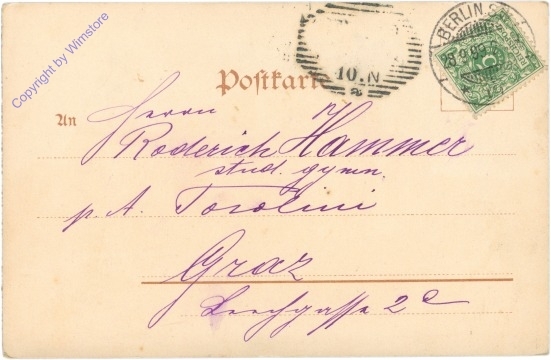 Copyright by Wimstore
BERLIN
10.N
Postkarte
An
Herrn
Roderich Hammer
stud. gymn.
p. A. Torolini
Graz
Leechgasse 2c